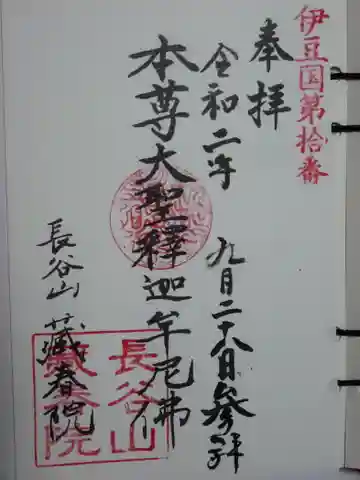 伊豆国第拾番
奉拝
令和二年 九月二十八日参拝
本尊大聖釋迦牟尼佛
長谷山 蔵春院
長谷山
蔵春院